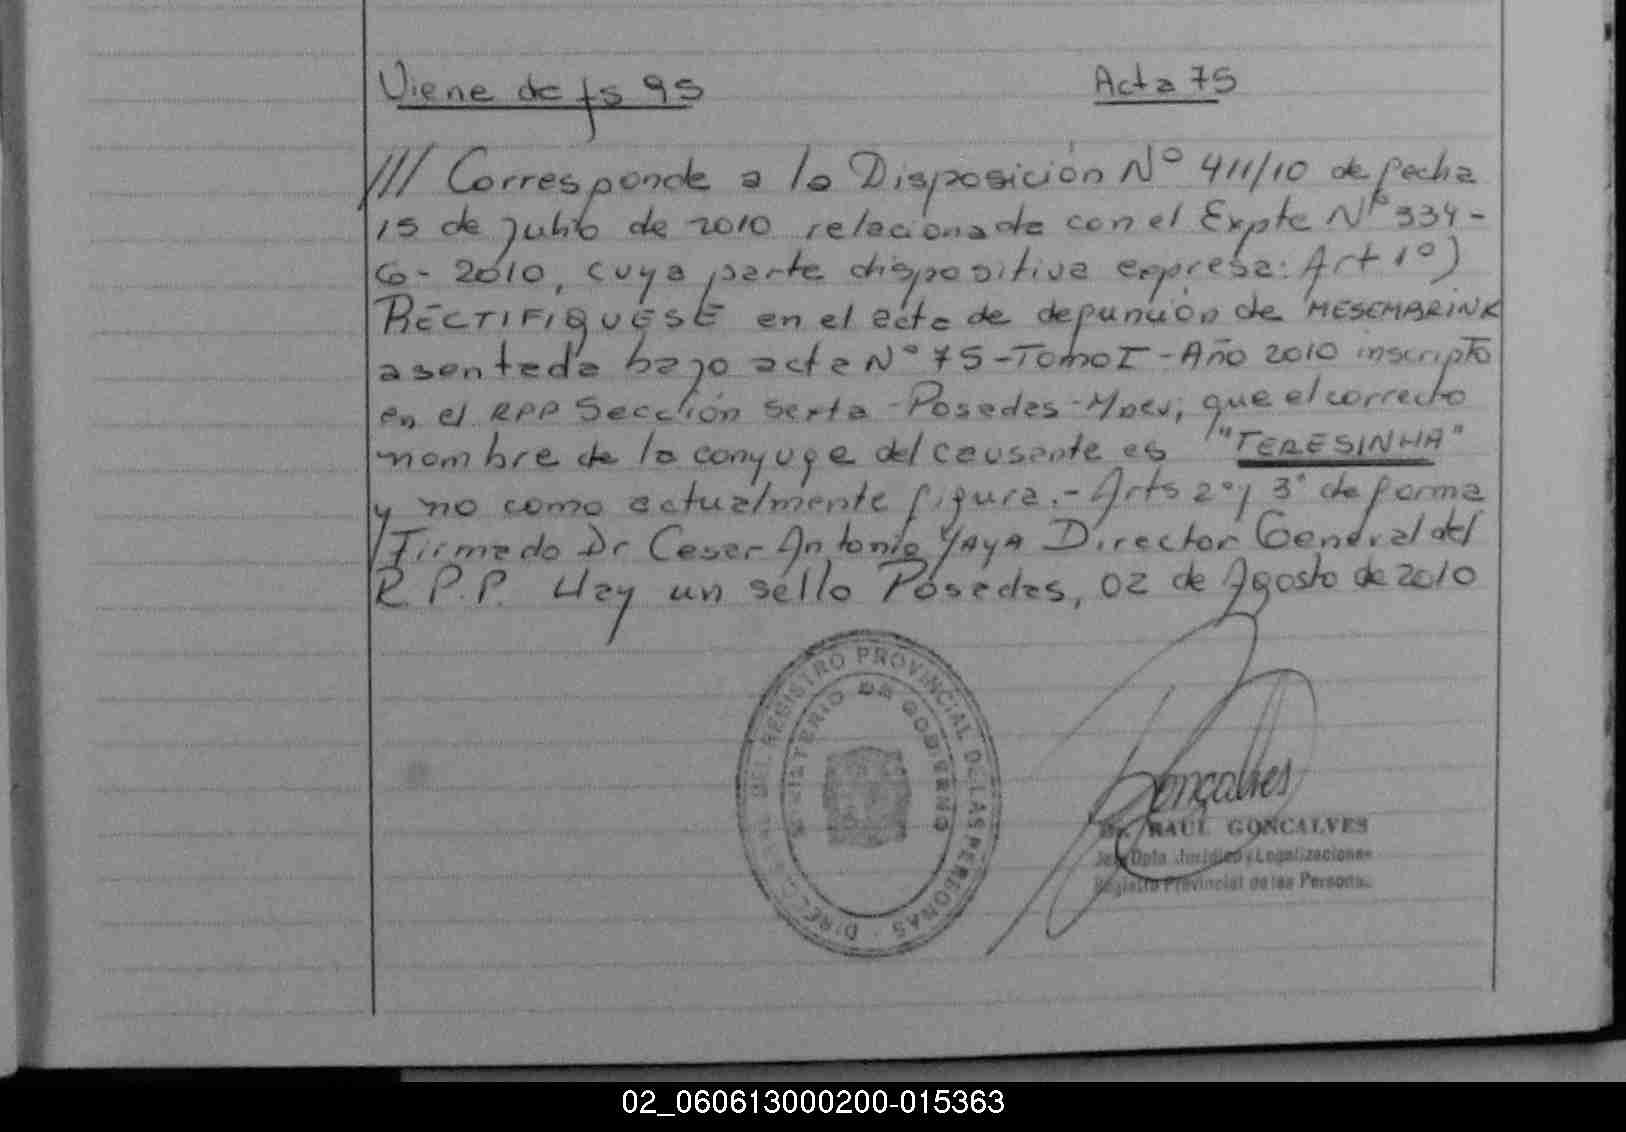 Viene de fs 95
Acta 75
/// Corresponde a la Disposición Nº 411/10 de fecha
15 de Julio de 2010 relacionada con el Expte Nº 334-
G- 2010, cuya parte dispositiva expresa: Art 1º)
RECTIFIQUESE en el acta de defunción de MESEMBRINK
asentada bajo acta Nº 75-TOMO I-Año 2010 inscripto
en el RPP Sección Sexta -Posadas-Mnes, que el correcto
nombre de la conyuge del causante es "TERESINHA"
y no como actualmente figura.- Arts 2º y 3º de forma
Firmado Dr Cesar Antonio YAYA Director General del
R.P.P. Hay un sello Posadas, 02 de Agosto de 2010
DEL REGISTRO PROVINCIAL DE LAS PERSONAS
MINISTERIO DE GOBIERNO
Gonçalves
Dr. RAUL GONCALVES
Jefe Dpto Jurídico y Legalizaciones
Registro Provincial de las Personas
02_060613000200-015363